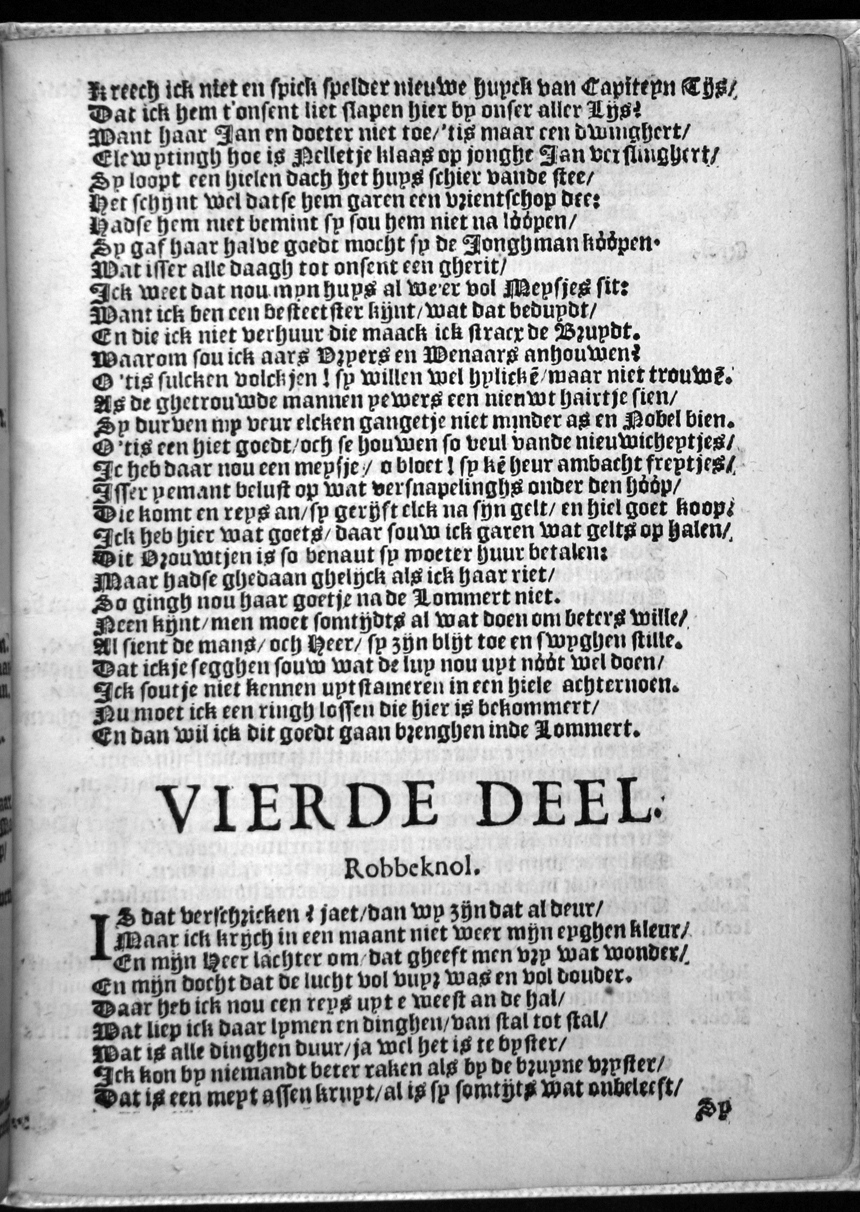 Kreech ick niet en spick spelder nieuwe huyck van Capiteyn Tijs/
Dat ick hem t'onsent liet slapen hier by onser aller Lijs?
Want haar Jan en doeter niet toe/'tis maar een dwinghert/
Elewytingh hoe is Nelletje klaas op jonghe Jan verslinghert/
Sy loopt een hielen dach het huys schier vande stee/
Het schijnt wel datse hem garen een vrientschop dee:
Hadse hem niet bemint sy sou hem niet na lóópen/
Sy gaf haar halve goedt mocht sy de Jonghman kóópen.
Wat isser alle daagh tot onsent een gherit/
Ick weet dat nou myn huys al weer vol Meysjes sit:
Want ick ben een besteetster kijnt/wat dat beduydt/
En die ick niet verhuur die maack ick stracx de Bruydt.
Waarom sou ick aars Vryers en Wenaars anhouwen?
O 'tis sulcken volckjen! sy willen wel hylickē/maar niet trouwē.
As de ghetrouwde mannen yewers een nieuwt hairtje sien/
Sy durven my veur elcken gangetje niet minder as en Nobel bien.
O 'tis een hiet goedt/och se houwen so veul vande nieuwicheytjes/
Ic heb daar nou een meysje/ o bloet! sy kē heur ambacht freytjes/
Isser yemant belust op wat versnapelinghs onder den hóóp/
Die komt en reys an/sy gerijft elck na sijn gelt/ en hiel goet koop;
Ick heb hier wat goets/daar souw ick garen wat gelts op halen/
Dit Vrouwtjen is so benaut sy moeter huur betalen:
Maar hadse ghedaan ghelijck als ick haar riet/
So gingh nou haar goetje na de Lommert niet.
Neen kijnt/men moet somtijdts al wat doen om beters wille/
Al sient de mans/och Heer/ sy zijn blijt toe en swyghen stille.
Dat ickje segghen souw wat de luy nou uyt nóót wel doen/
Ick soutje niet kennen uytstameren in een hiele achternoen.
Nu moet ick een ringh lossen die hier is bekommert/
En dan wil ick dit goedt gaan brenghen inde Lommert.
VIERDE DEEL.
Robbeknol.
IS dat verschricken? jaet/dan wy zijn dat al deur/
Maar ick krijch in een maant niet weer mijn eyghen kleur/
En mijn Heer lachter om/dat gheeft men vry wat wonder/
En mijn docht dat de lucht vol vuyr was en vol donder.
Daar heb ick nou een reys uyt e weest an de hal/
Wat liep ick daar lymen en dinghen/van stal tot stal/
Wat is alle dinghen duur/ja wel het is te byster/
Ick kon by niemandt beter raken als by de bruyne vryster/
Dat is een meyt assen kruyt/al is sy somtijts wat onbeleeft/
Sy